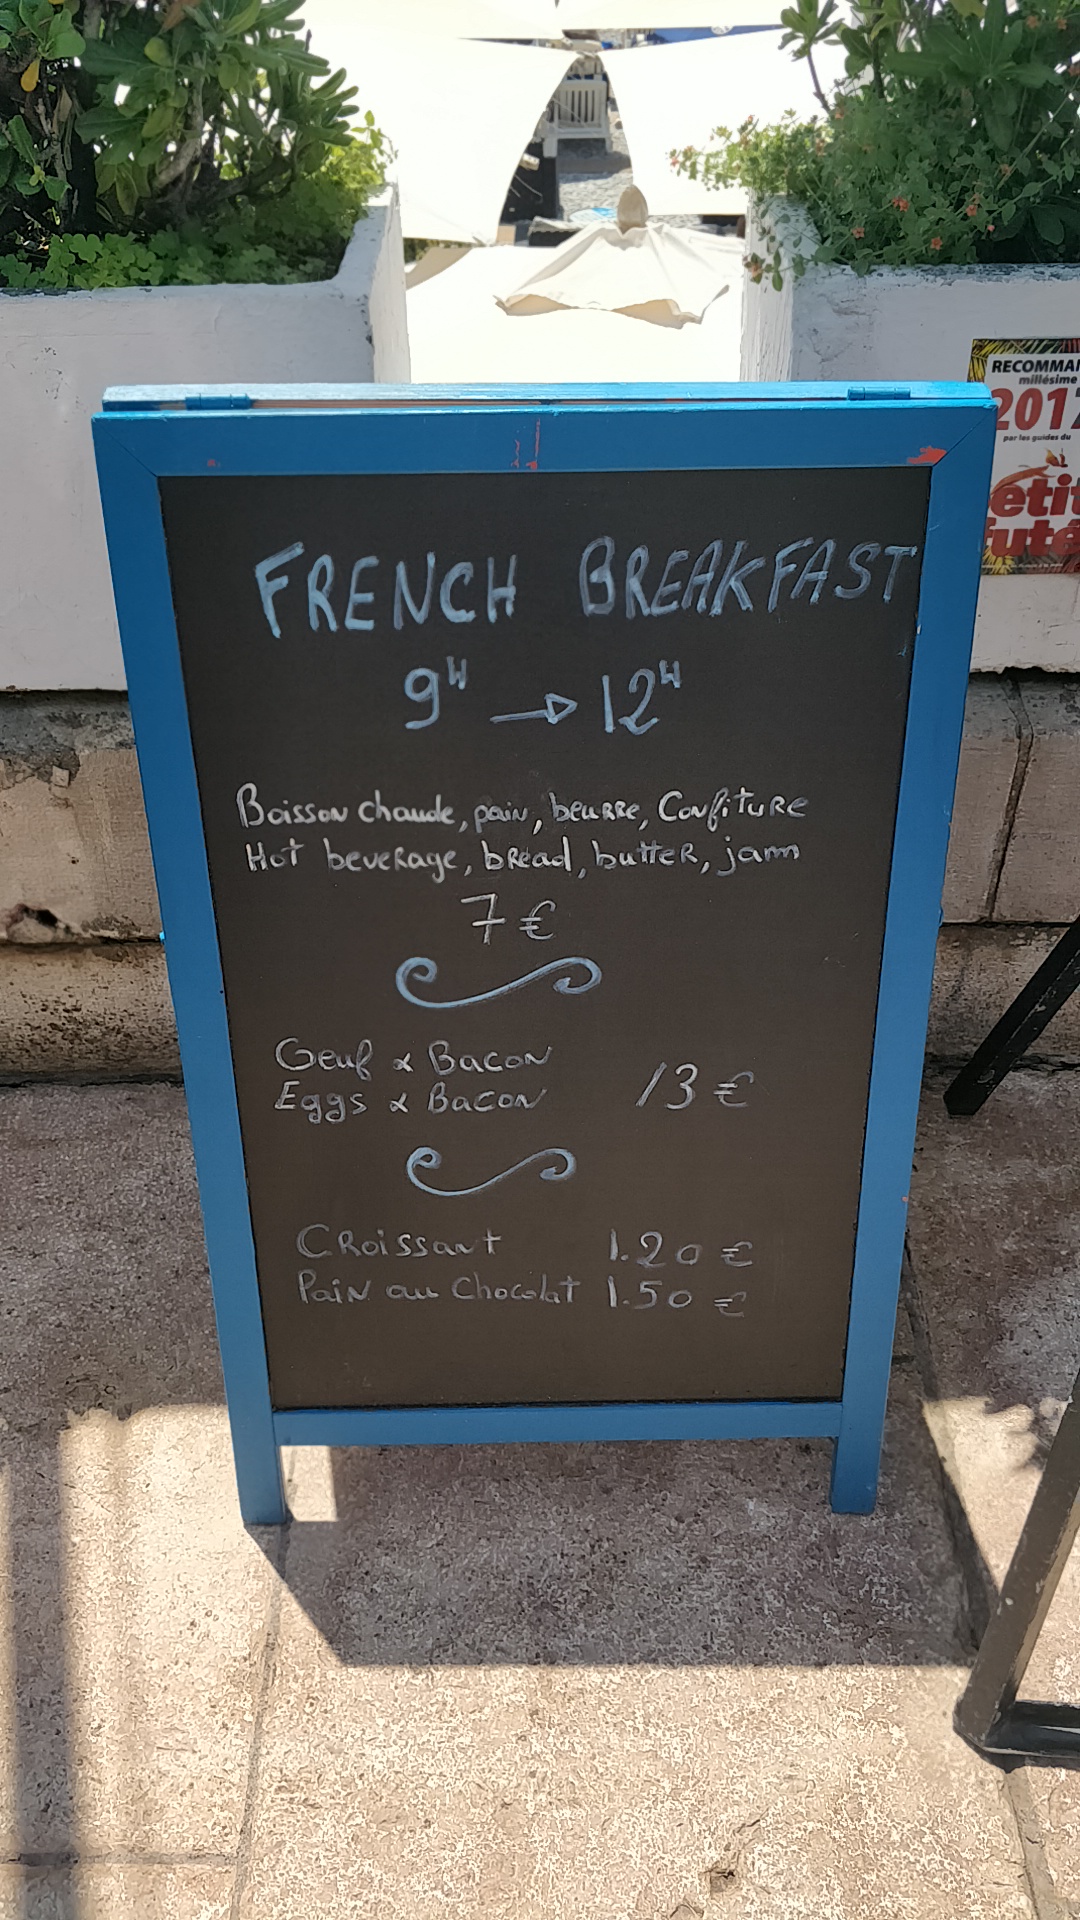 FRENCH BREAKFAST
9H → 12H
Boisson chaude, pain, beurre, Confiture
Hot beverage, bread, butter, jam
7 €
Oeuf & Bacon
Eggs & Bacon
13 €
Croissant 1.20 €
Pain au Chocolat 1.50 €
RECOMMAN
millésime
2017
par les guides du
etit
futé